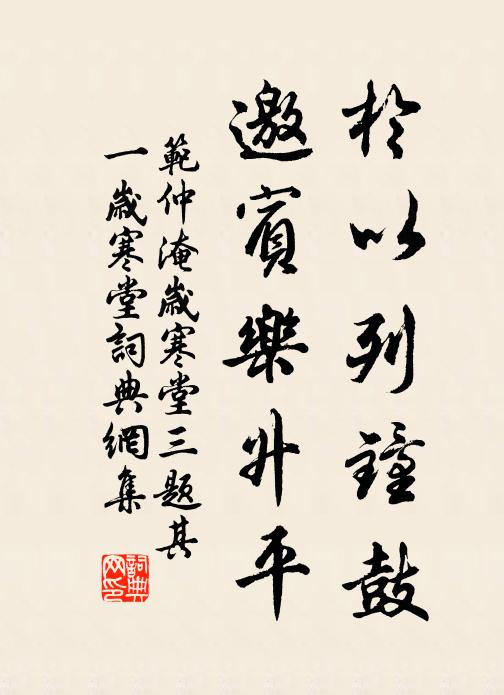 於以列鐘鼓
邀賓樂升平
範仲淹歲寒堂三題其
一歲寒堂詞典網集
詞典
网印